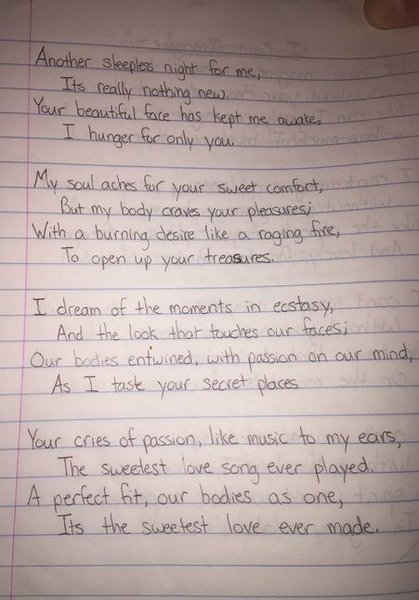 Another sleepless night for me,
Its really nothing new.
Your beautiful face has kept me awake,
I hunger for only you.
My soul aches for your sweet comfort,
But my body craves your pleasures;
With a burning desire like a raging fire,
To open up your treasures.
I dream of the moments in ecstasy,
And the look that touches our faces;
Our bodies entwined, with passion on our mind,
As I taste your secret places
Your cries of passion, like music to my ears,
The sweetest love song ever played.
A perfect fit, our bodies as one,
Its the sweetest love ever made.